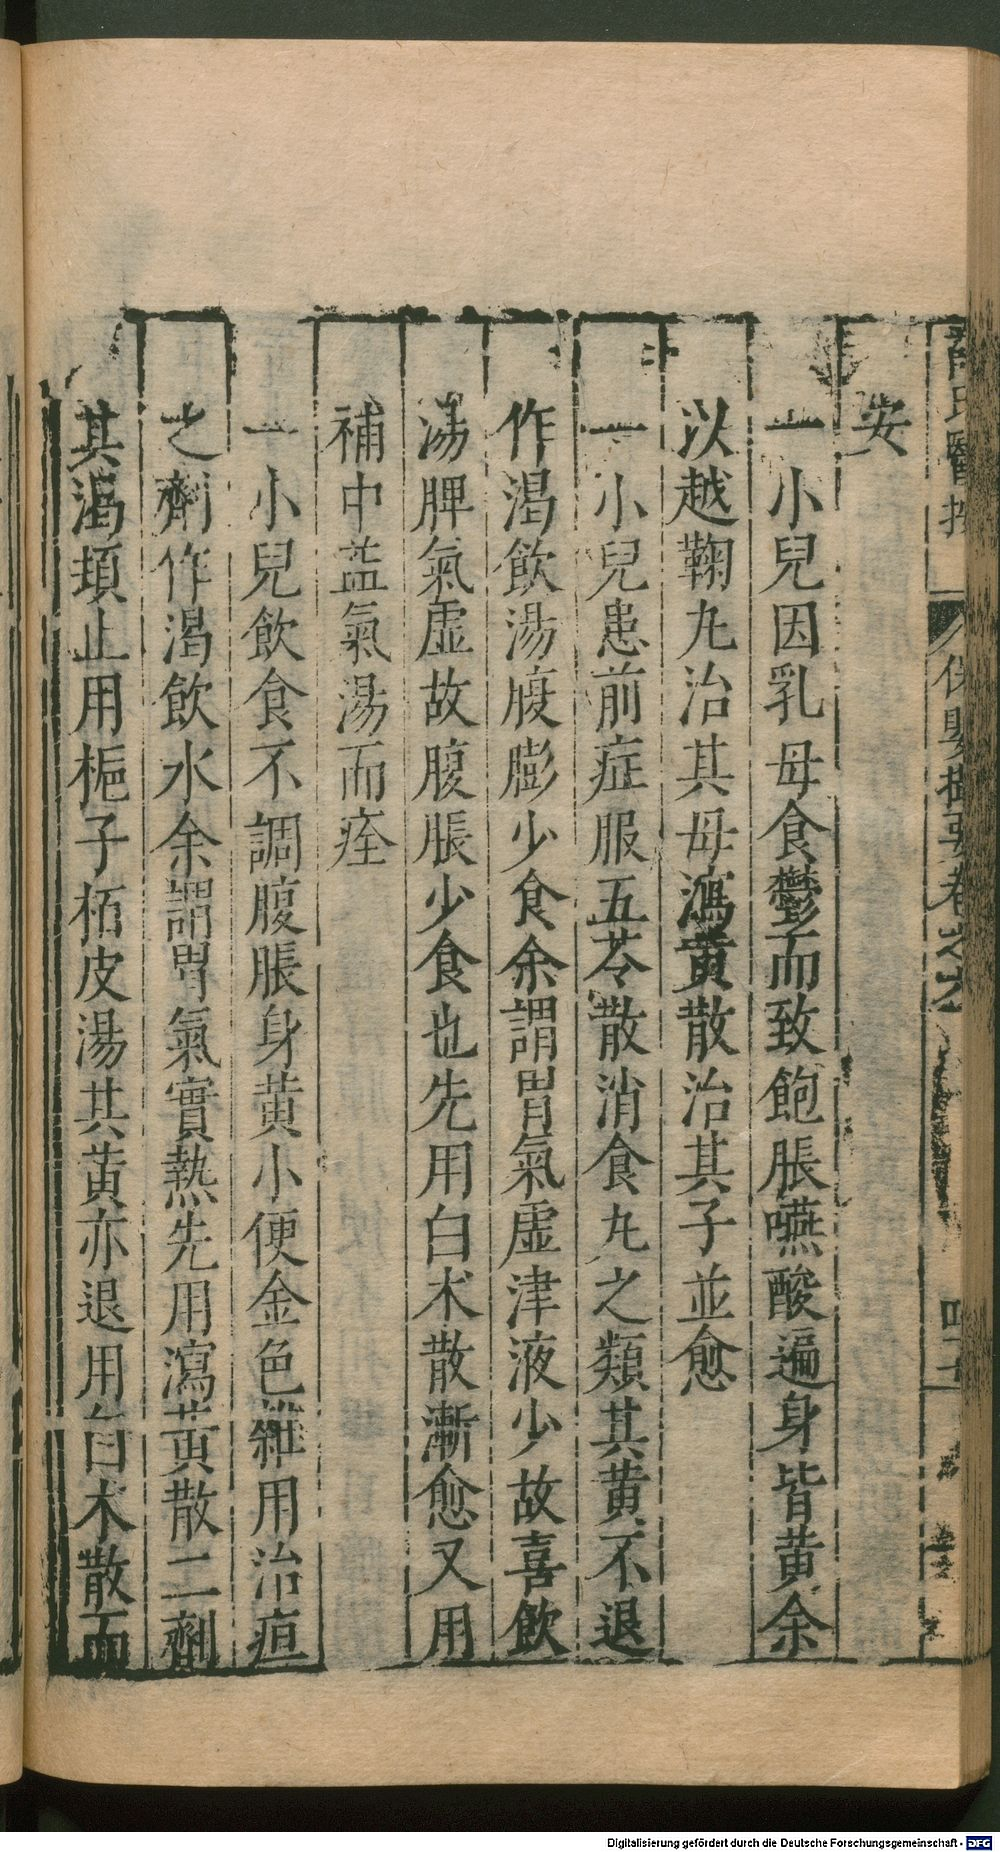 薛氏醫按 保嬰撮要卷之六
安
一小兒因乳母食鬱而致飽脹嚥酸遍身皆黃余
以越鞠丸治其母瀉黃散治其子並愈
一小兒患前症服五苓散消食丸之類其黃不退
作渴飲湯腹膨少食余謂胃氣虛津液少故喜飲
湯脾氣虛故腹脹少食也先用白朮散漸愈又用
補中益氣湯而痊
一小兒飲食不調腹脹身黃小便金色雜用治疸
之劑作渴飲水余謂胃氣實熱先用瀉黃散二劑
其渴頓止用梔子栢皮湯其黃亦退用白朮散而
Digitalisierung gefördert durch die Deutsche Forschungsgemeinschaft - DFG